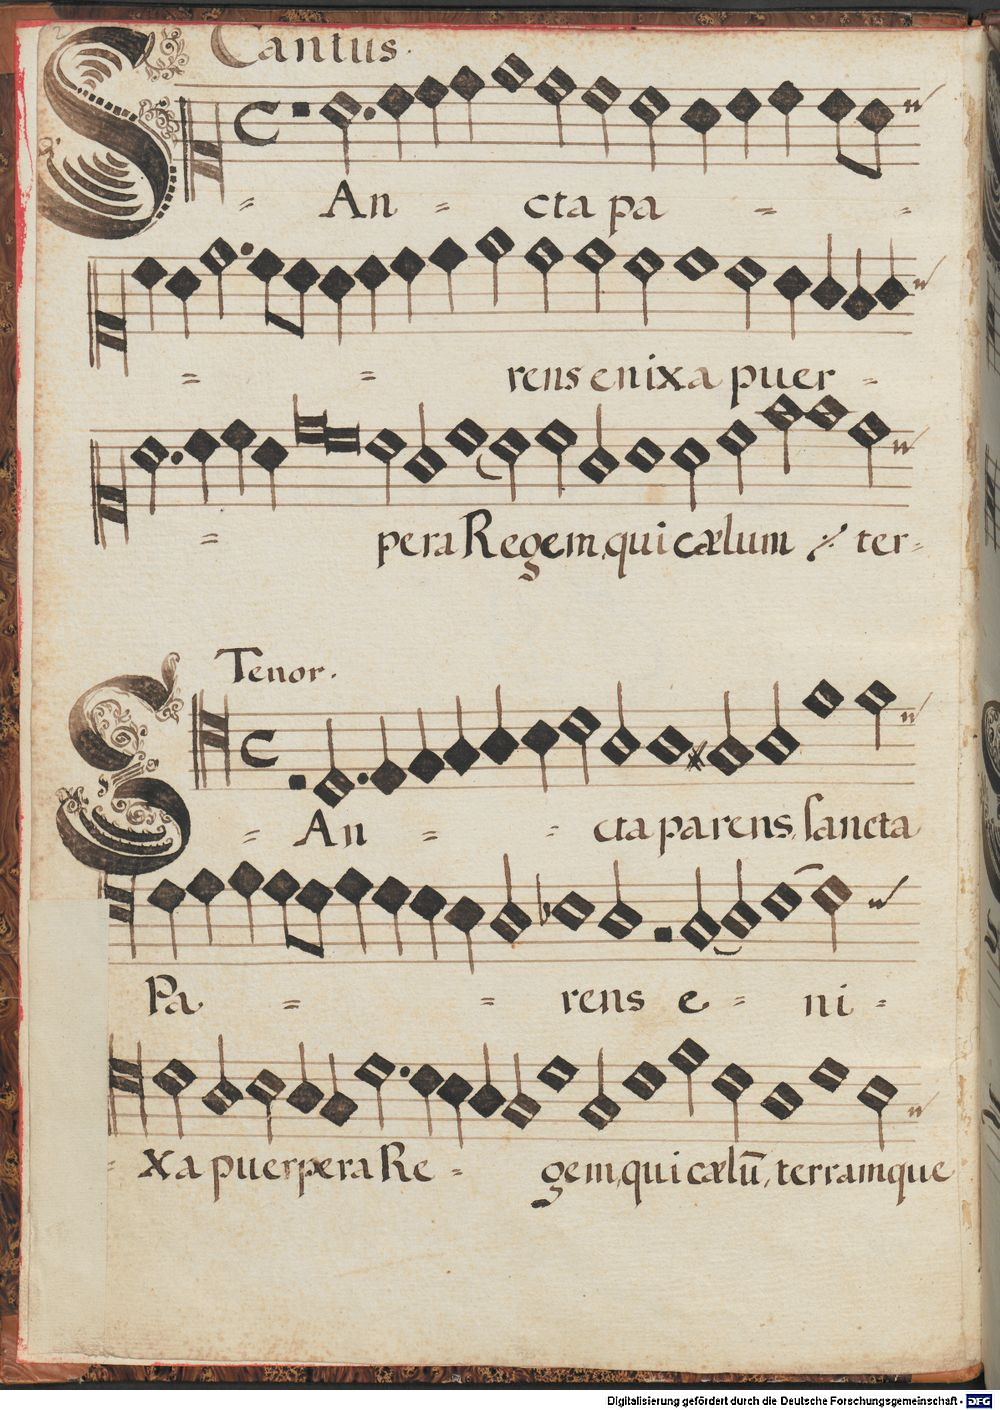 2
Cantus.
SAn - cta pa - -
= = rens enixa puer -
= pera Regem, qui cælum ⁒ ter-
Tenor.
SAn = = cta parens, sancta
Pa = = rens e - ni -
xa puerpera Re - gem, qui cælū, terramque
Digitalisierung gefördert durch die Deutsche Forschungsgemeinschaft - DFG